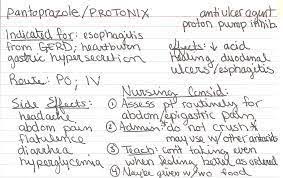 pantoprazole/PROTONIX
antiulcer agent
proton pump inhib.
Indicated for: esophagitis
from GERD; heartburn
gastric hypersecretion
effects: ↓ acid
healing, duodenal
ulcers/esphagitis
Route: PO; IV
Side Effects:
headache
abdom pain
flatulence
diarrhea
hyperglycemia
Nursing Consid:
① Assess pt routinely for
abdom/epigastric pain
② Admin: do not crush
may use w/ other antacids
③ Teach: cont taking even
when feeling better as ordered
④ Maybe given w/wo food